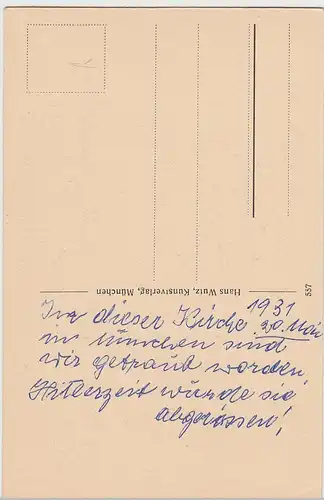 Hans Wutz, Kunstverlag, München
557
In dieser Kirche 1931
in München sind 20. Mai
wir getraut worden,
Hitlerzeit wurde sie
abgerissen!